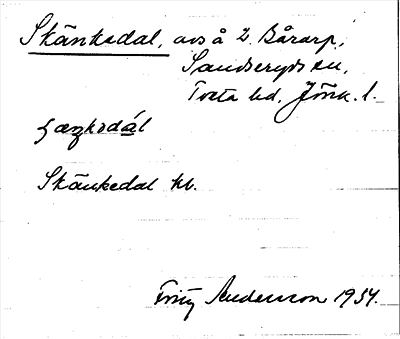 Skänkedal, avs å 2 Bårarp,
Sandseryds sn,
Tveta hd. Jönk. l.
Skänkedal kb.
Fritz Andersson 1934.